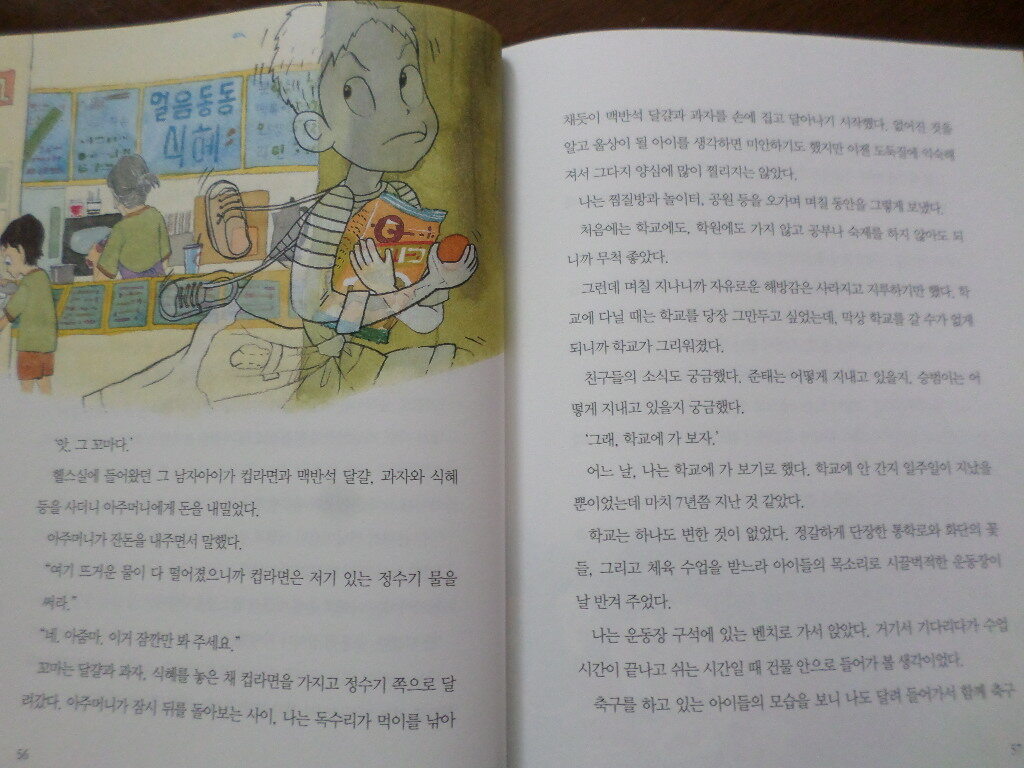 얼음동동
식혜
'앗, 그 꼬마다.'
헬스실에 들어왔던 그 남자아이가 컵라면과 맥반석 달걀, 과자와 식혜
등을 사더니 아주머니에게 돈을 내밀었다.
아주머니가 잔돈을 내주면서 말했다.
"여기 뜨거운 물이 다 떨어졌으니까 컵라면은 저기 있는 정수기 물을
써라."
"네, 아줌마. 이거 잠깐만 봐 주세요."
꼬마는 달걀과 과자, 식혜를 놓은 채 컵라면을 가지고 정수기 쪽으로 달
려갔다. 아주머니가 잠시 뒤를 돌아보는 사이, 나는 독수리가 먹이를 낚아
56
채듯이 맥반석 달걀과 과자를 손에 집고 달아나기 시작했다. 없어진 것을
알고 울상이 될 아이를 생각하면 미안하기도 했지만 이젠 도둑질에 익숙해
져서 그다지 양심에 많이 찔리지는 않았다.
나는 찜질방과 놀이터, 공원 등을 오가며 며칠 동안을 그렇게 보냈다.
처음에는 학교에도, 학원에도 가지 않고 공부나 숙제를 하지 않아도 되
니까 무척 좋았다.
그런데 며칠 지나니까 자유로운 해방감은 사라지고 지루하기만 했다. 학
교에 다닐 때는 학교를 당장 그만두고 싶었는데, 막상 학교를 갈 수가 없게
되니까 학교가 그리워졌다.
친구들의 소식도 궁금했다. 준태는 어떻게 지내고 있을지, 승범이는 어
떻게 지내고 있을지 궁금했다.
'그래, 학교에 가 보자.'
어느 날, 나는 학교에 가 보기로 했다. 학교에 안 간지 일주일이 지났을
뿐이었는데 마치 7년쯤 지난 것 같았다.
학교는 하나도 변한 것이 없었다. 정갈하게 단장한 통학로와 화단의 꽃
들, 그리고 체육 수업을 받느라 아이들의 목소리로 시끌벅적한 운동장이
날 반겨 주었다.
나는 운동장 구석에 있는 벤치로 가서 앉았다. 거기서 기다리다가 수업
시간이 끝나고 쉬는 시간일 때 건물 안으로 들어가 볼 생각이었다.
축구를 하고 있는 아이들의 모습을 보니 나도 달려 들어가서 함께 축구
57